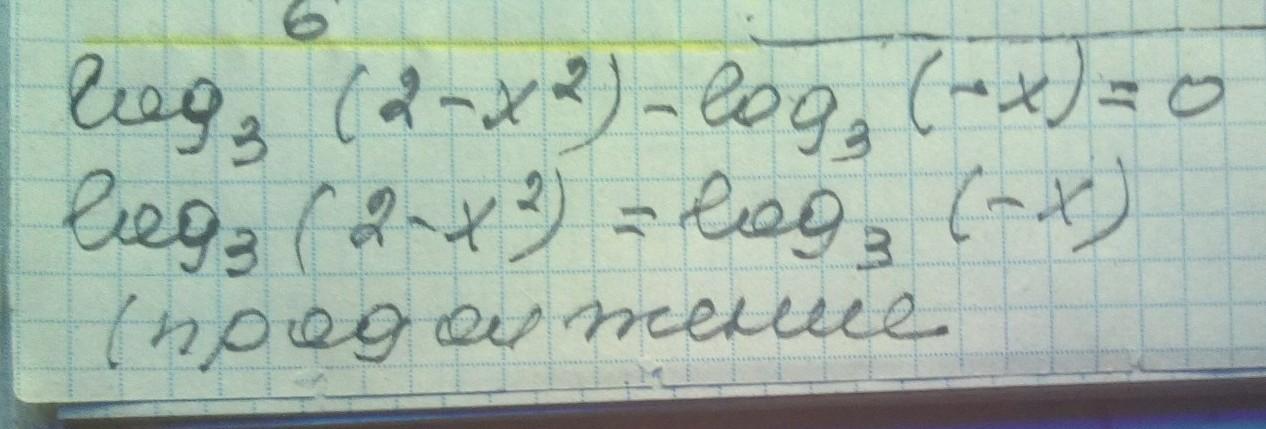 6
log₃ (2-x²) - log₃ (-x) = 0
log₃ (2-x²) = log₃ (-x)
(продолжение